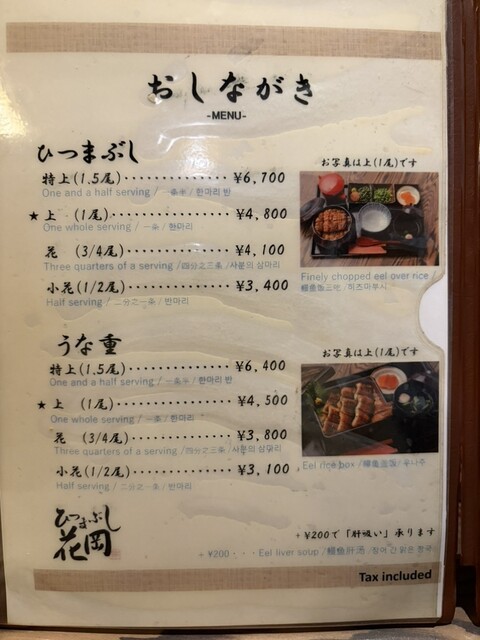 おしながき
-MENU-
ひつまぶし
特上(1.5尾)・・・・・・・・・・・・・・・¥6,700
One and a half serving / 一条半 / 한마리 반
★上 (1尾)・・・・・・・・・・・・・・・¥4,800
One whole serving / 一条 / 한마리
花 (3/4尾)・・・・・・・・・・・・・・・¥4,100
Three quarters of a serving /四分之三条/사분의 삼마리
小花(1/2尾)・・・・・・・・・・・・・・¥3,400
Half serving / 二分之一条 / 반마리
お写真は上(1尾)です
Finely chopped eel over rice /
鰻魚飯三吃 / 히츠마부시
うな重
特上(1.5尾)・・・・・・・・・・・・・・・¥6,400
One and a half serving / 一条半 / 한마리 반
★上 (1尾)・・・・・・・・・・・・・・・¥4,500
One whole serving / 一条 / 한마리
花 (3/4尾)・・・・・・・・・・・・・・・¥3,800
Three quarters of a serving /四分之三条/사분의 삼마리
小花(1/2尾)・・・・・・・・・・・・・・¥3,100
Half serving / 二分之一条 / 반마리
お写真は上(1尾)です
Eel rice box / 鰻魚盒飯 / 우나쥬
ひつまぶし
花岡
+¥200で「肝吸い」承ります
+ ¥200・・・Eel liver soup / 鰻魚肝汤 / 장어 간 맑은 장국
Tax included